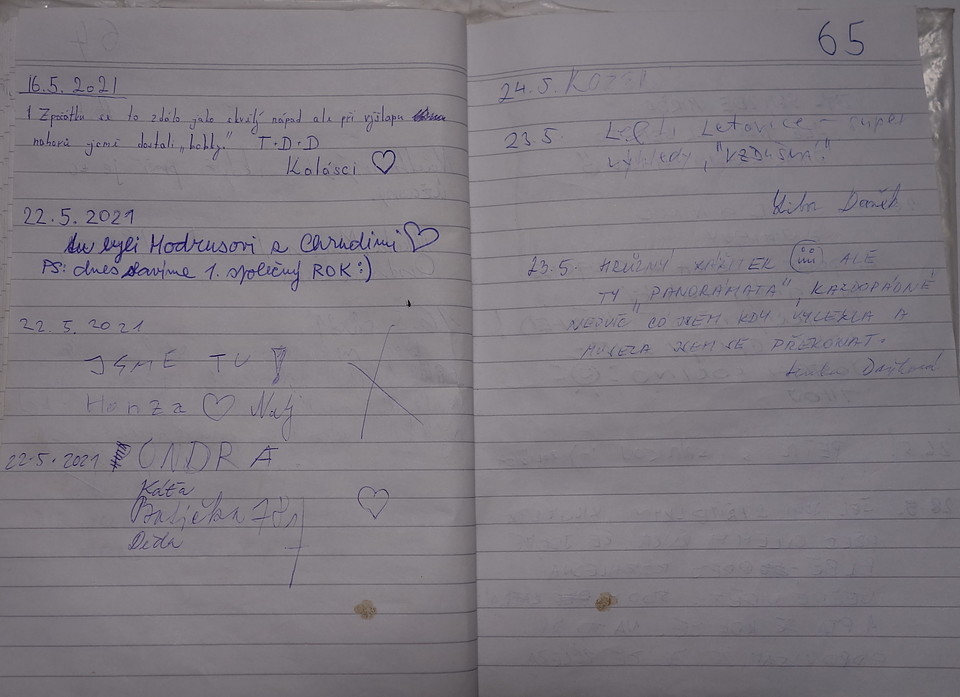 16.5. 2021
! Zpočátku se to zdálo jako skvělý nápad ale při výšlapu
nahoru jsme dostali „bobky." T.D.D
Kolásci ♡
22.5.2021
tu byli Modrusovi z Chrudimi ♡
PS: dnes slavíme 1. společný ROK :)
22.5.2021
JSME TU !
Honza ♡ Naty
22.5.2021 ONDRA
Káťa
Babička
Děda
♡
65
24.5.
23.5. Letovice – super
výhledy, "VZDUŠNÁ".
Liba Daněk
23.5. HRŮZNÝ ZÁŽITEK ALE
TY „PANORÁMATA", KAŽDOPÁDNĚ
NEJVÍC CO JSEM KDY VYLEKLA A
MUSELA JSEM SE PŘEKONAT.
Lenka